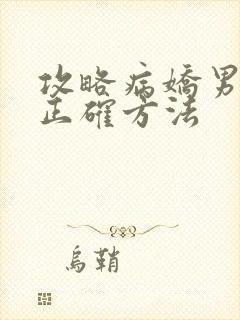 攻略病嬌男
正確方法
烏鞘